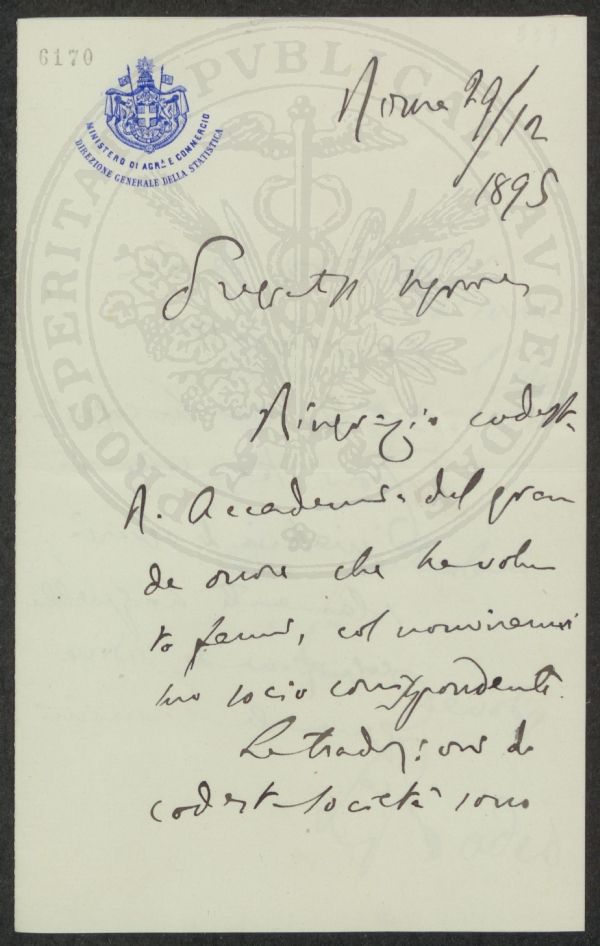 6170
MINISTERO DI AGR.A E COMMERCIO
DIREZIONE GENERALE DELLA STATISTICA
PROSPERITATI PVBLICAE AVGENDAE
Roma 29/12
1895
Pregiatss signore
Ringrazio codesta
R. Accademia del gran
de onore che ha volu
to farmi, col nominarmi
suo socio corrispondente.
Le tradizioni di
codesta Società sono